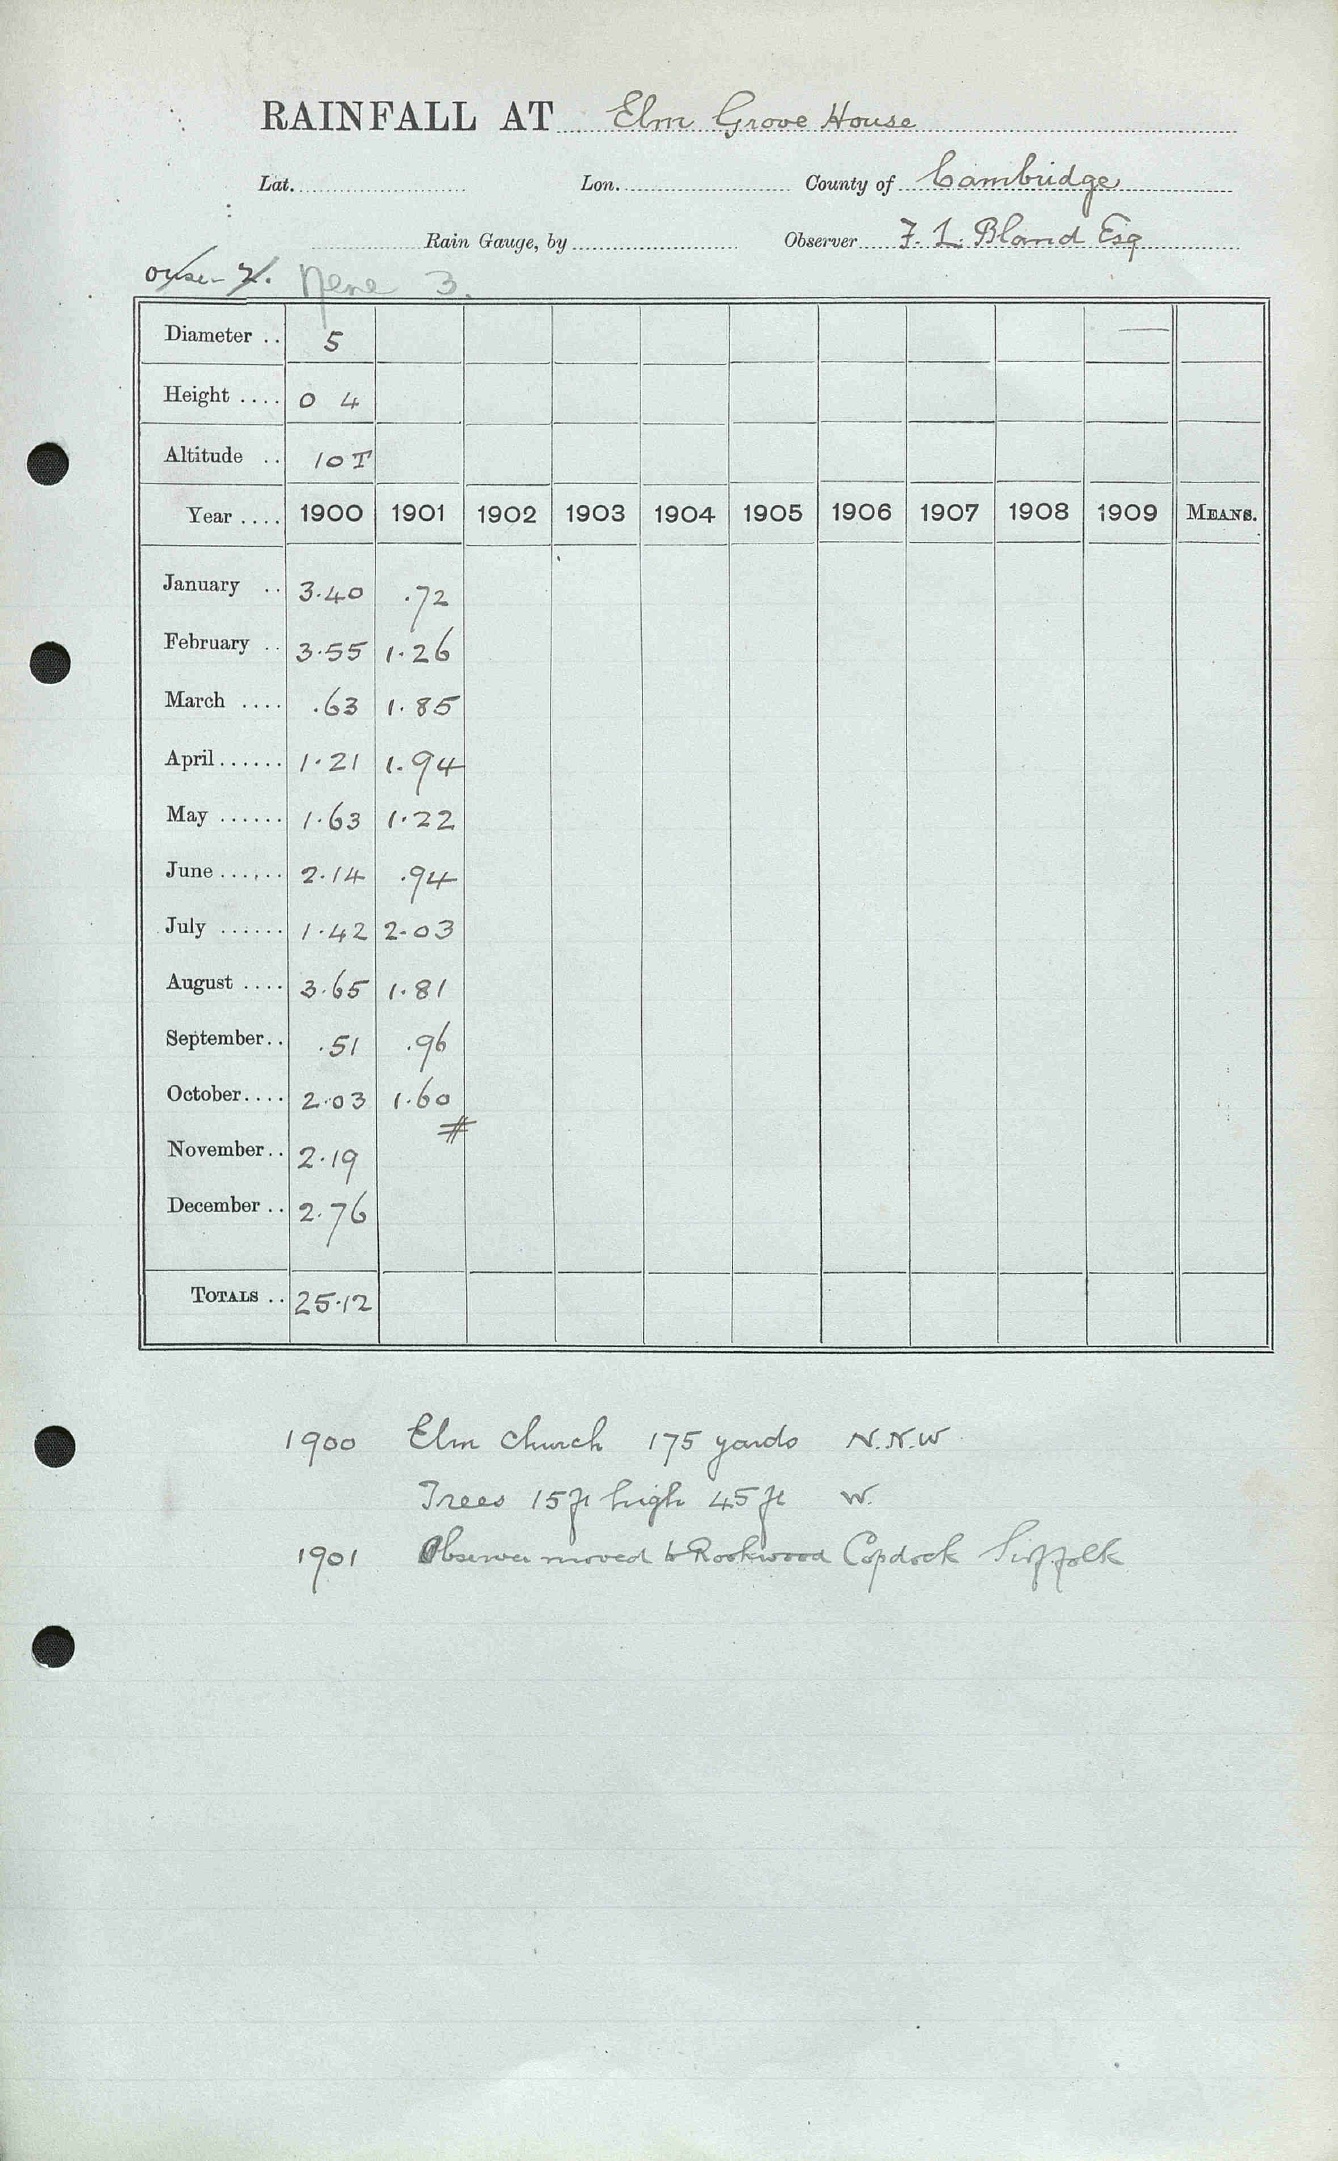 RAINFALL AT Elm Grove House
Lat. Lon. County of Cambridge
Rain Gauge, by Observer F. L. Bland Esq
Ouse 7. Nene 3.
Diameter .. 5
Height .... 0 4
Altitude .. 10 T
Year .... 1900 1901 1902 1903 1904 1905 1906 1907 1908 1909 MEANS.
January .. 3.40 .72
February .. 3.55 1.26
March .... .63 1.85
April...... 1.21 1.94
May ...... 1.63 1.22
June ...... 2.14 .94
July ...... 1.42 2.03
August .... 3.65 1.81
September.. .51 .96
October.... 2.03 1.60
#
November.. 2.19
December .. 2.76
TOTALS .. 25.12
1900 Elm church 175 yards N.N.W
Trees 15 ft high 45 ft W.
1901 Observer moved to Rookwood Copdock Suffolk